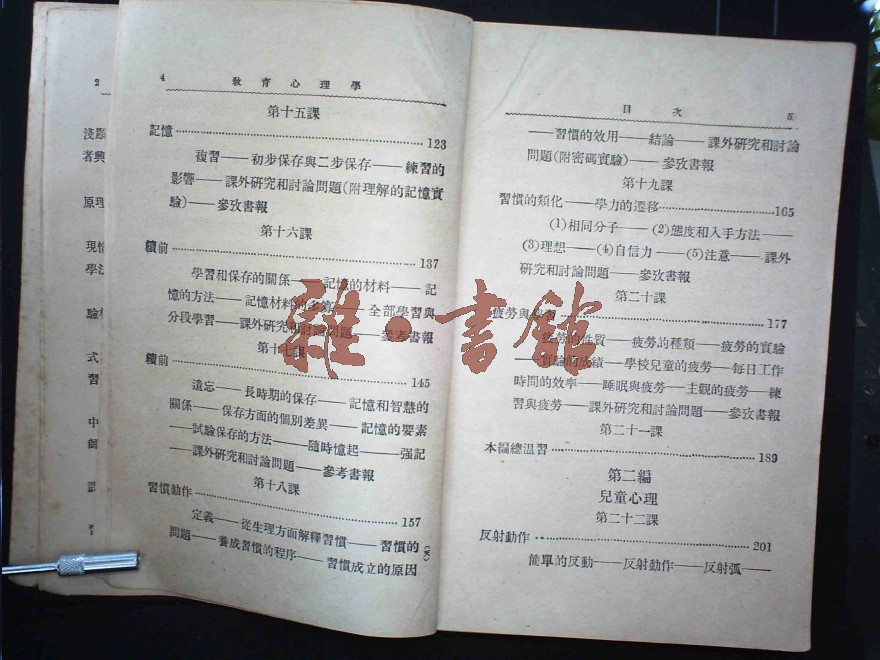 2
淺題
者興
原理
現情
學沒
驗
式
習
中
師
4 教育心理學
第十五課
記憶 123
複習——初步保存與二步保存——練習的
影響——課外研究和討論問題(附理解的記憶實
驗)——參攷書報
第十六課
續前 137
學習和保存的關係——記憶的材料——記
憶的方法——記憶材料的多寡——全部學習與
分段學習——課外研究和討論問題——參考書報
第十七課
續前 145
遺忘——長時期的保存——記憶和智慧的
關係——保存方面的個別差異——記憶的要素
——試驗保存的方法——隨時憶起——强記
——課外研究和討論問題——參考書報
第十八課
習慣動作 157
定義——從生理方面解釋習慣——習慣的
問題——養成習慣的程序——習慣成立的原因
目次 5
——習慣的效用——結論——課外研究和討論
問題(附密碼實驗)——參攷書報
第十九課
習慣的類化——學力的遷移 165
(1)相同分子——(2)態度和入手方法——
(3)理想——(4)自信力——(5)注意——課外
研究和討論問題——參攷書報
第二十課
疲勞與學習 177
疲勞的性質——疲勞的種類——疲勞的實驗
——實驗的成績——學校兒童的疲勞——每日工作
時間的效率——睡眠與疲勞——主觀的疲勞——練
習與疲勞——課外研究和討論問題——參攷書報
第二十一課
本編總温習 189
第二編
兒童心理
第二十二課
反射動作 201
簡單的反動——反射動作——反射弧——
雜·書館